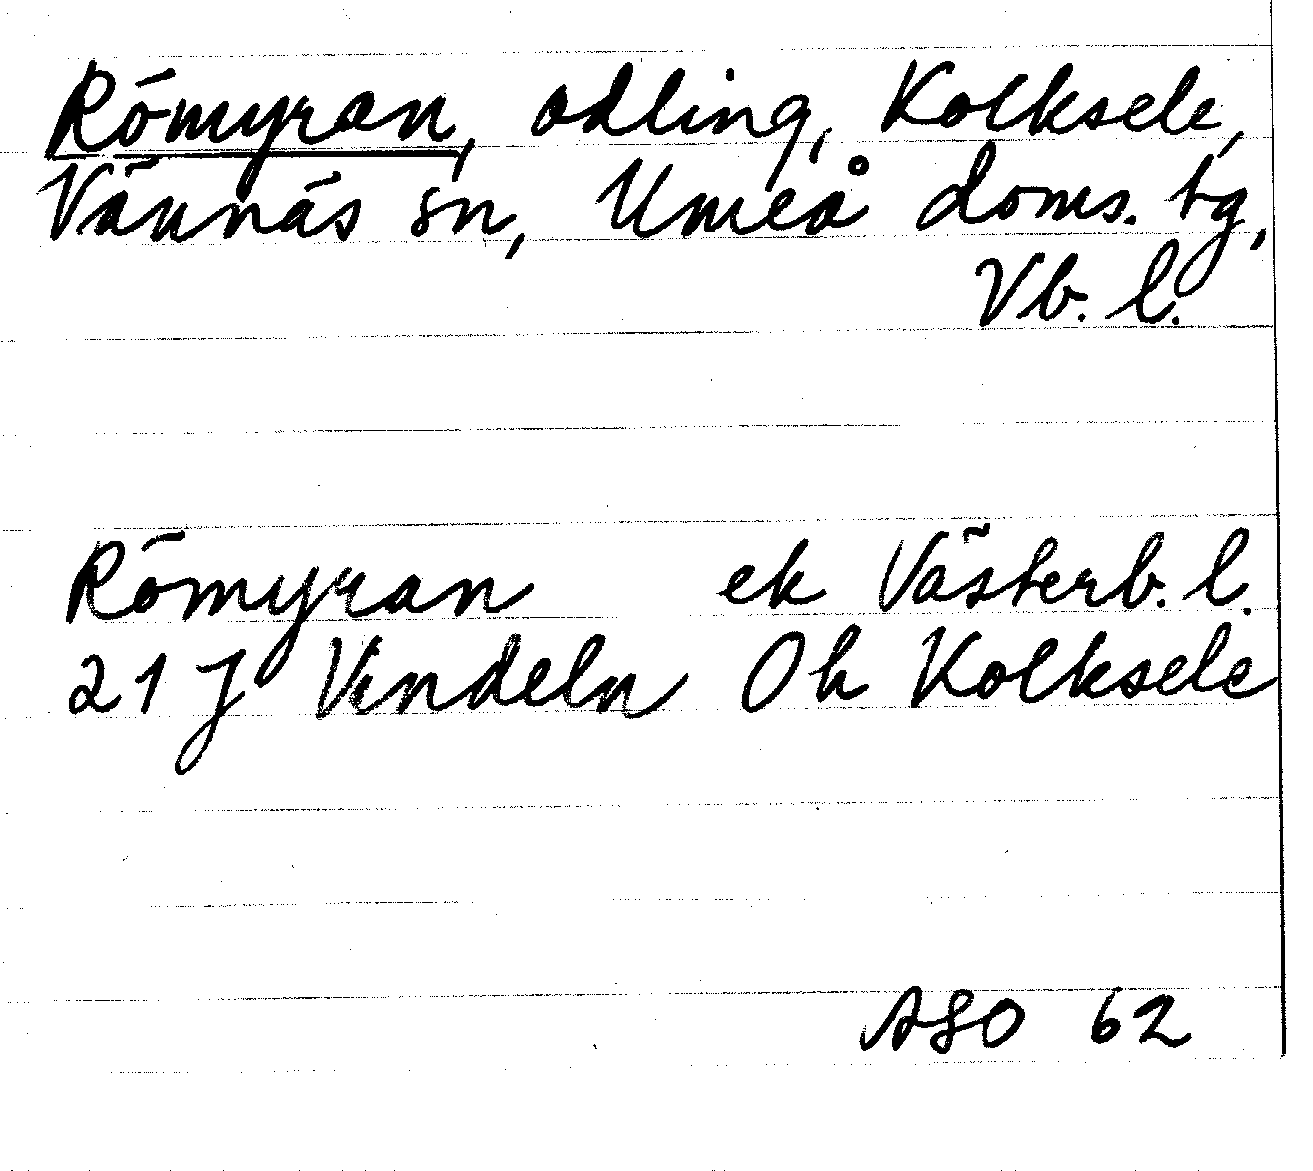 Römyran, odling, Kolksele,
Vännäs sn, Umeå doms. tg,
Vb. l.
Römyran ek Västerb. l.
21 J Vindeln Oh Kolksele
ASO 62